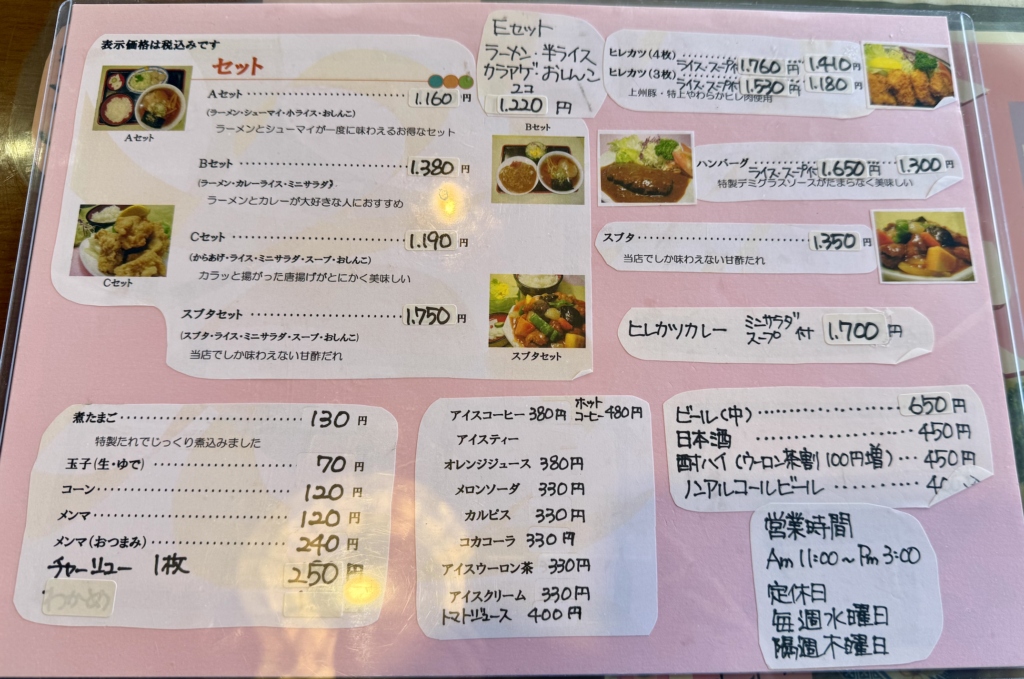 表示価格は税込みです
セット
Aセット 1.160円
(ラーメン・シューマイ・小ライス・おしんこ)
ラーメンとシューマイが一度に味わえるお得なセット
Aセット
Bセット 1.380円
(ラーメン・カレーライス・ミニサラダ)
ラーメンとカレーが大好きな人におすすめ
Cセット 1.190円
(からあげ・ライス・ミニサラダ・スープ・おしんこ)
カラッと揚がった唐揚げがとにかく美味しい
Cセット
スブタセット 1.750円
(スブタ・ライス・ミニサラダ・スープ・おしんこ)
当店でしか味わえない甘酢だれ
Eセット
ラーメン・半ライス
カラアゲ・おしんこ
2コ
1.220円
Bセット
スブタセット
ヒレカツ(4枚) ライス・スープ付 1.760円 1.410円
ヒレカツ(3枚) ライス・スープ付 1.530円 1.180円
上州豚・特上やわらかヒレ肉使用
ハンバーグ ライス・スープ付 1.650円 1.300円
特製デミグラスソースがたまらなく美味しい
スブタ 1.350円
当店でしか味わえない甘酢だれ
ヒレカツカレー ミニサラダ スープ 付 1.700円
煮たまご 130円
特製たれでじっくり煮込みました
玉子(生・ゆで) 70円
コーン 120円
メンマ 120円
メンマ(おつまみ) 240円
チャーシュー 1枚 250円
わかめ
アイスコーヒー 380円 ホットコーヒー 480円
アイスティー
オレンジジュース 380円
メロンソーダ 330円
カルピス 330円
コカコーラ 330円
アイスウーロン茶 330円
アイスクリーム 330円
トマトジュース 400円
ビール(中) 650円
日本酒 450円
酎ハイ(ウーロン茶割100円増) 450円
ノンアルコールビール
営業時間
Am 11:00〜Pm 3:00
定休日
毎週水曜日
隔週木曜日